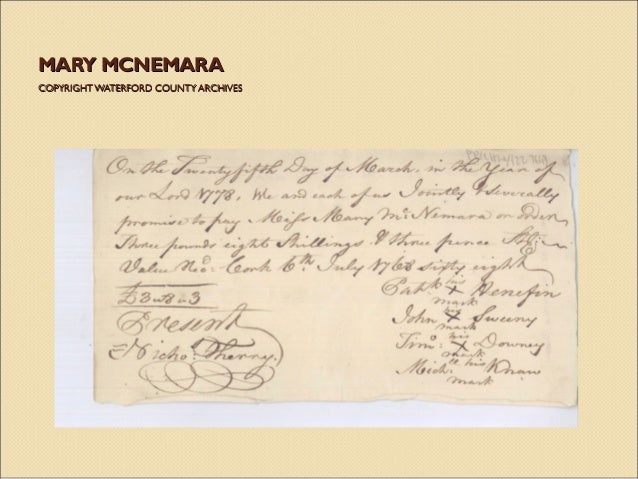 MARY MCNEMARA
COPYRIGHT WATERFORD COUNTY ARCHIVES
On the Twenty fifth Day of March, in the Year of
our Lord 1778, We and each of us Jointly & Severally
promise to pay Miss Mary McNemara or order
Three pounds eight Shillings & three pence Stg:
Value Recd. Cork 6th July 1768 sixty eight
£3 " 8 " 3
Present
Nicho. Therry.
Patk his X mark Henefin
John his X mark Sweeny
Timo: his X mark Downey
Mich: his mark